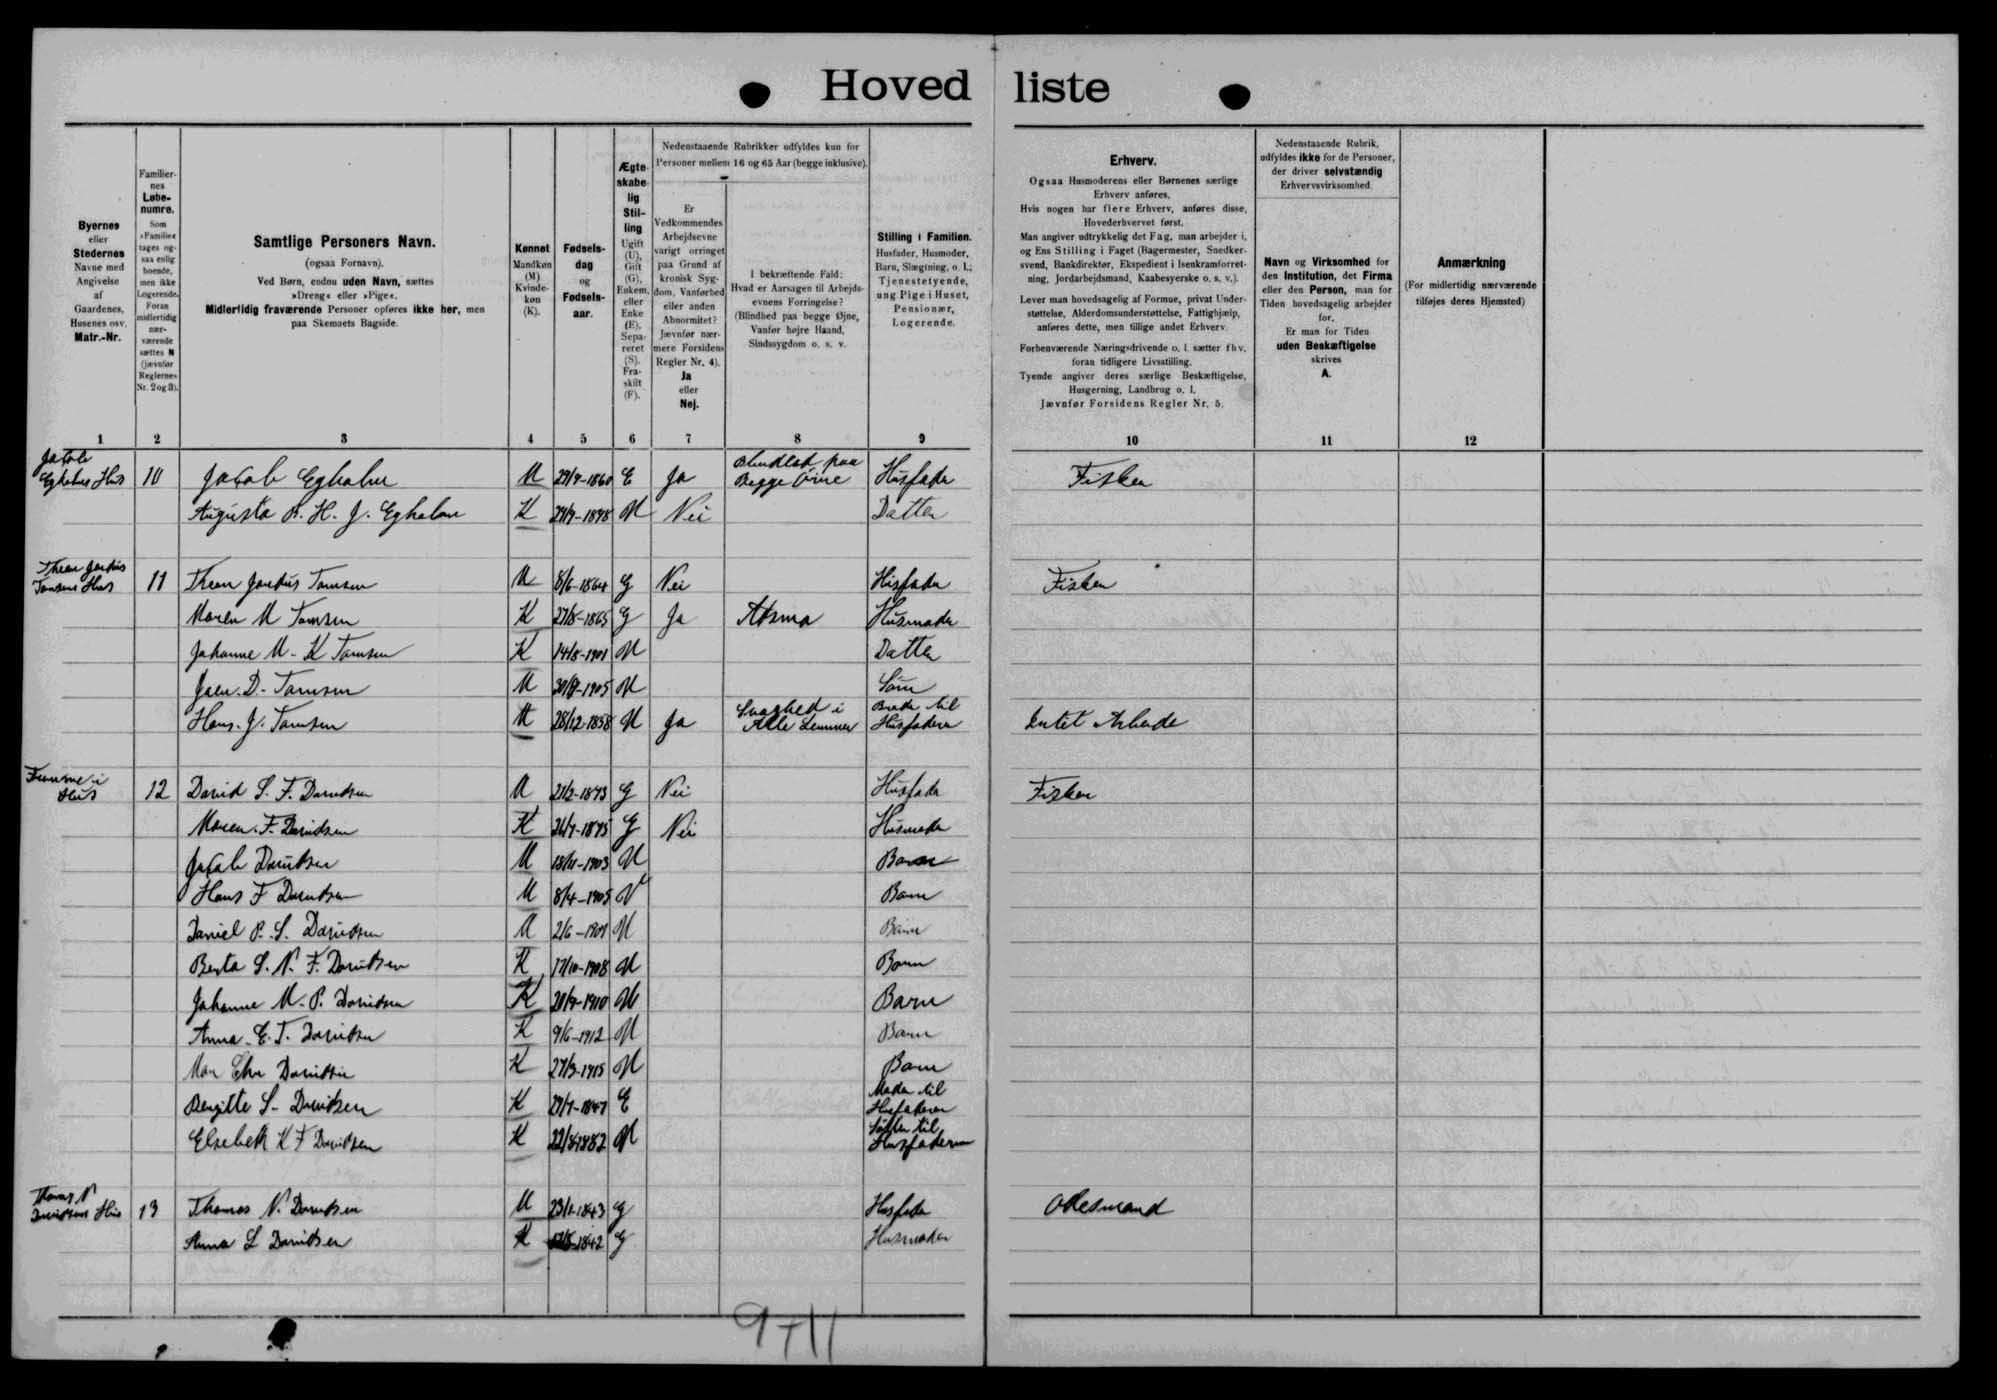 Hoved liste
Byernes
eller
Stedernes
Navne med
Angivelse
af
Gaardenes,
Husenes osv.
Matr.-Nr.
Familier-
nes
Løbe-
numre.
Som
»Familie«
tages og-
saa enlig
boende,
men ikke
Logerende.
Foran
midlertidig
nær-
værende
sættes N
(jævnfør
Reglernes
Nr. 2 og 3).
Samtlige Personers Navn.
(ogsaa Fornavn).
Ved Børn, endnu uden Navn, sættes
»Dreng« eller »Pige«.
Midlertidig fraværende Personer opføres ikke her, men
paa Skemaets Bagside.
Kønnet
Mandkøn
(M)
Kvinde-
køn
(K).
Fødsels-
dag
og
Fødsels-
aar.
Ægte-
skabe-
lig
Stil-
ling
Ugift
(U),
Gift
(G),
Enkem.
eller
Enke
(E),
Sepa-
reret
(S),
Fra-
skilt
(F).
Nedenstaaende Rubrikker udfyldes kun for
Personer mellem 16 og 65 Aar (begge inklusive).
Er
Vedkommendes
Arbejdsevne
varigt forringet
paa Grund af
kronisk Syg-
dom, Vanførhed
eller anden
Abnormitet?
Jævnfør nær-
mere Forsidens
Regler Nr. 4).
Ja
eller
Nej.
I bekræftende Fald:
Hvad er Aarsagen til Arbejds-
evnens Forringelse?
(Blindhed paa begge Øjne,
Vanfør højre Haand,
Sindssygdom o. s. v.
Stilling i Familien.
Husfader, Husmoder,
Barn, Slægtning, o. l.;
Tjenestetyende,
ung Pige i Huset,
Pensionær,
Logerende.
Erhverv.
Ogsaa Husmoderens eller Børnenes særlige
Erhverv anføres.
Hvis nogen har flere Erhverv, anføres disse,
Hovederhvervet først.
Man angiver udtrykkelig det Fag, man arbejder i,
og Ens Stilling i Faget (Bagermester, Snedker-
svend, Bankdirektør, Ekspedient i Isenkramforret-
ning, Jordarbejdsmand, Kaabesyerske o. s. v.).
Lever man hovedsagelig af Formue, privat Under-
støttelse, Alderdomsunderstøttelse, Fattighjælp,
anføres dette, men tillige andet Erhverv.
Forhenværende Næringsdrivende o. l. sætter fhv.
foran tidligere Livsstilling.
Tyende angiver deres særlige Beskæftigelse,
Husgerning, Landbrug o. l.
Jævnfør Forsidens Regler Nr. 5.
Nedenstaaende Rubrik,
udfyldes ikke for de Personer,
der driver selvstændig
Erhvervsvirksomhed.
Navn og Virksomhed for
den Institution, det Firma
eller den Person, man for
Tiden hovedsagelig arbejder
for.
Er man for Tiden
uden Beskæftigelse
skrives
A.
Anmærkning
(For midlertidig nærværende
tilføjes deres Hjemsted)
1 2 3 4 5 6 7 8 9 10 11 12
Jacob
Egholms Hus 10 Jacob Egholm M 1860 E Ja Begge Öine Husfader Fisker
Augusta R. H. J. Egholm K 1898 U Nei Datter
Hus 11 Tomsen M 8/6-1864 G Nei Husfader Fisker
Maren M Tomsen K 27/8-1865 G Ja Atsma Husmoder
Johanne M-K Tomsen K 14/8-1901 U Datter
Joen. D. Tomsen M 1905 U Sön
Hans. J. Tomsen M 28/12-1858 U Ja Svaghed i
Alle Lemmer Broder til
Husfaderen Intet Arbeide
Hus 12 David S. F. Davidsen M 21/2-1873 G Nei Husfader Fisker
Maren. F. Davidsen K 1875 G Nei Husmoder
Jacob Davidsen M 18/11-1903 U Barn
Hans F Davidsen M 8/4-1905 U Barn
Daniel P. S. Davidsen M 2/6- U Barn
Berta S. N. F. Davidsen K 17/10-1908 U Barn
Johanne M. P. Davidsen K 1910 U Barn
Anna E. T. Davidsen K 9/6-1912 U Barn
Davidsen K 27/3-1915 U Barn
Birgitte S- Davidsen K 1847 E Moder til
Husfaderen
Elsebeth K F Davidsen K 1882 U Söster til
Husfaderen
Thomas N
Davidsens Hus 13 Thomas N. Davidsen M 1843 G Husfader
Anna S Davidsen K 1842 G Husmoder
9+11